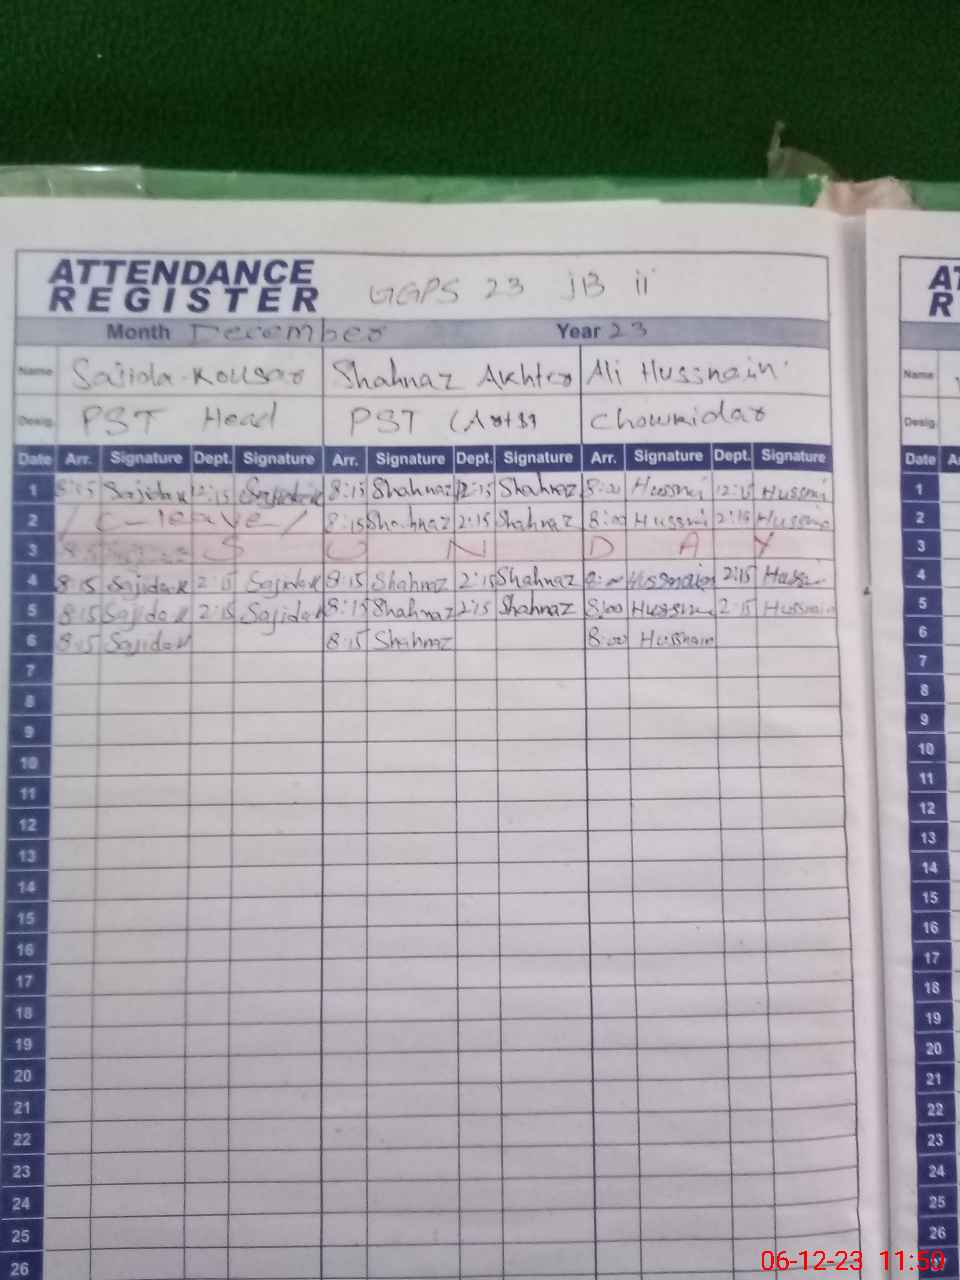 ATTENDANCE
REGISTER GGPS 23 JB ii
Month December Year 23
Name Sajida Kousar Shahnaz Akhter Ali Hussnain
Desig. PST Head PST (Arts) Chowkidar
Date Arr. Signature Dept. Signature Arr. Signature Dept. Signature Arr. Signature Dept. Signature
1 8:15 Sajida K 12:15 Sajida K 8:15 Shahnaz 12:15 Shahnaz 8:00 Hussnai 12:15 Hussnai
2 / C-leave / 8:15 Shahnaz 2:15 Shahnaz 8:00 Hussni 2:15
3 S U N D A Y
4 8:15 Sajida K 2:15 Sajida K 8:15 Shahnaz 2:15 Shahnaz 8:00 Hussnain 2:15
5 8:15 Sajida K 2:15 Sajida K 8:15 Shahnaz 2:15 Shahnaz 8:00 2:15 Hussnain
6 8:15 Sajida K 8:15 Shahnaz 8:00 Hussnain
7
8
9
10
11
12
13
14
15
16
17
18
19
20
21
22
23
24
25
26
AT
R
Name
Desig.
Date A
1
2
3
4
5
6
7
8
9
10
11
12
13
14
15
16
17
18
19
20
21
22
23
24
25
26
06-12-23 11:59